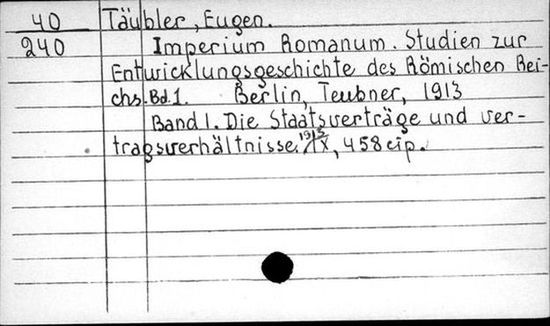 40 Täubler, Eugen.
240 Imperium Romanum. Studien zur
Entwicklungsgeschichte des Römischen Rei-
chs. Bd. 1. Berlin, Teubner, 1913
Band 1. Die Staatsverträge und Ver-
tragsverhältnisse. 1913 IX, 458 cip.